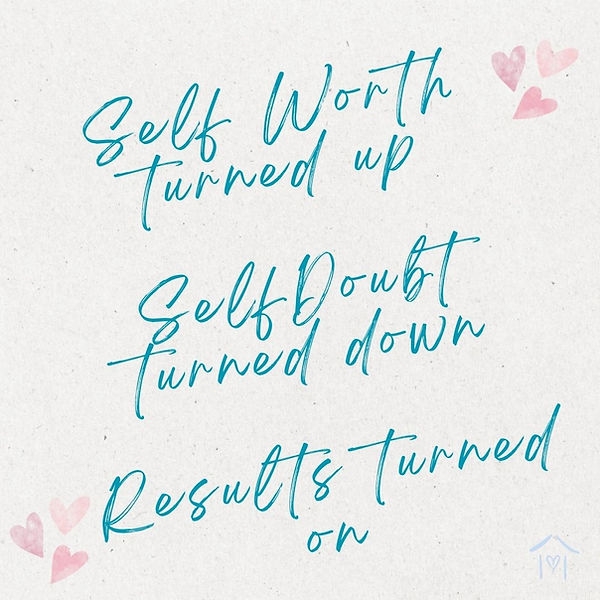 Self Worth
turned up
Self Doubt
turned down
Results turned
on